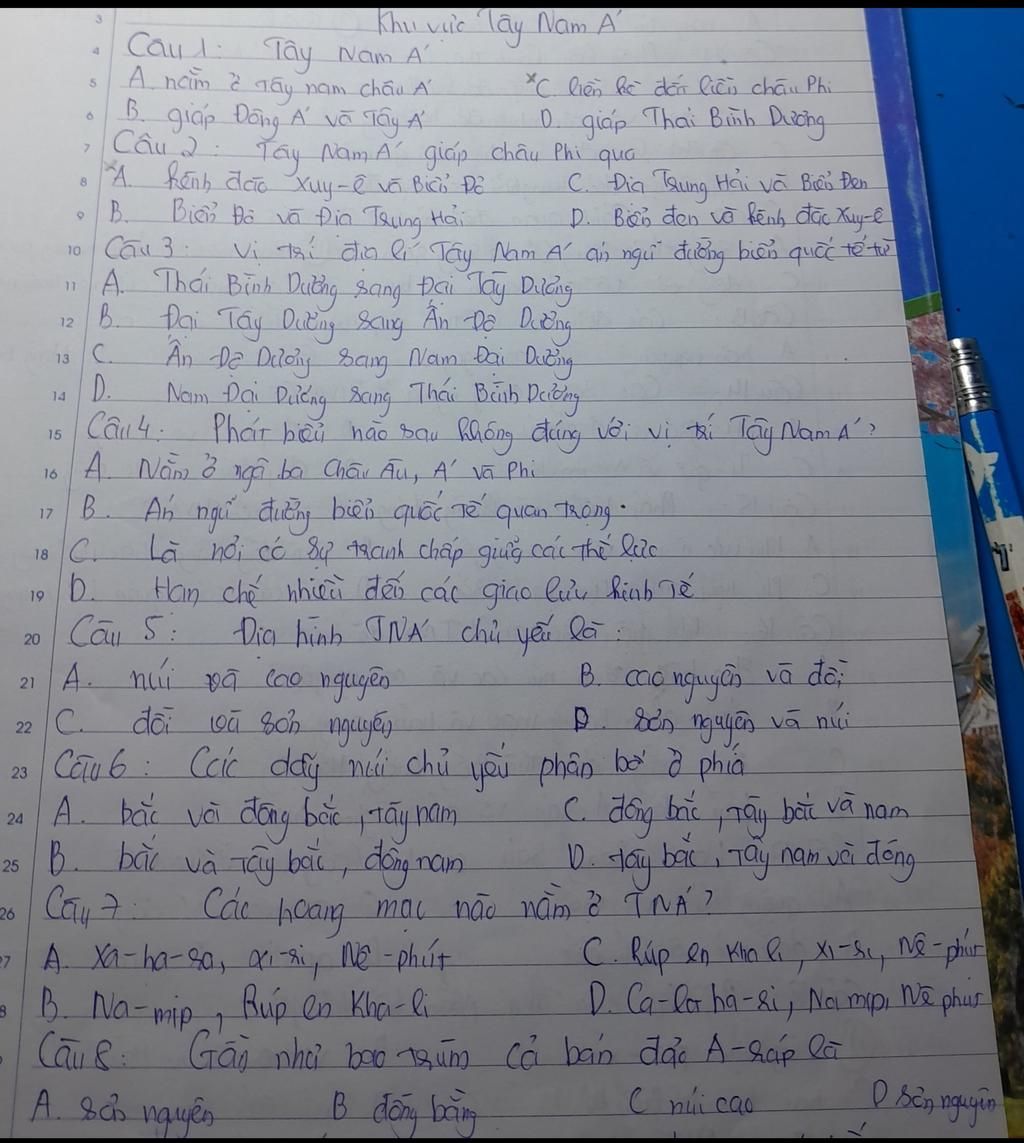 Khu vực Tây Nam Á
3
4 Câu 1: Tây Nam Á
5 A. nằm ở Tây nam châu Á C. liền kề đất liền châu Phi
6 B. giáp Đông Á và Tây Á D. giáp Thái Bình Dương
7 Câu 2: Tây Nam Á giáp châu Phi qua
8 A. kênh đào Xuy-ê và Biển Đỏ C. Địa Trung Hải và Biển Đen
9 B. Biển Đỏ và Địa Trung Hải D. Biển đen và kênh đào Xuy-ê
10 Câu 3: Vị trí địa lí Tây Nam Á án ngữ đường biển quốc tế từ
11 A. Thái Bình Dương sang Đại Tây Dương
12 B. Đại Tây Dương sang Ấn Độ Dương
13 C. Ấn Độ Dương sang Nam Đại Dương
14 D. Nam Đại Dương sang Thái Bình Dương
15 Câu 4: Phát biểu nào sau không đúng với vị trí Tây Nam Á?
16 A. Nằm ở ngã ba Châu Âu, Á và Phi
17 B. Án ngữ đường biển quốc tế quan trọng.
18 C. Là nơi có sự tranh chấp giữa các thế lực
19 D. Hạn chế nhiều đến các giao lưu kinh tế
20 Câu 5: Địa hình TNÁ chủ yếu là:
21 A. núi và cao nguyên B. cao nguyên và đồi
22 C. đồi và sơn nguyên D sơn nguyên và núi
23 Câu 6: Các dãy núi chủ yếu phân bố ở phía
24 A. bắc và đông bắc, tây nam C. đông bắc, tây bắc và nam
25 B. bắc và tây bắc, đông nam D. tây bắc, tây nam và đông
26 Câu 7: Các hoang mạc nào nằm ở TNÁ?
7 A. Xa-ha-ra, xi-ri, Nê-phút C. Rúp en Kha li, xi-ri, Nê-phút
8 B. Na-mip, Rúp en Kha-li D. Ca-la ha-ri, Na mip, Nê phut
Câu 8: Gần như bao trùm cả bán đảo A-ráp là
A. sơn nguyên B đồng bằng C núi cao D sơn nguyên